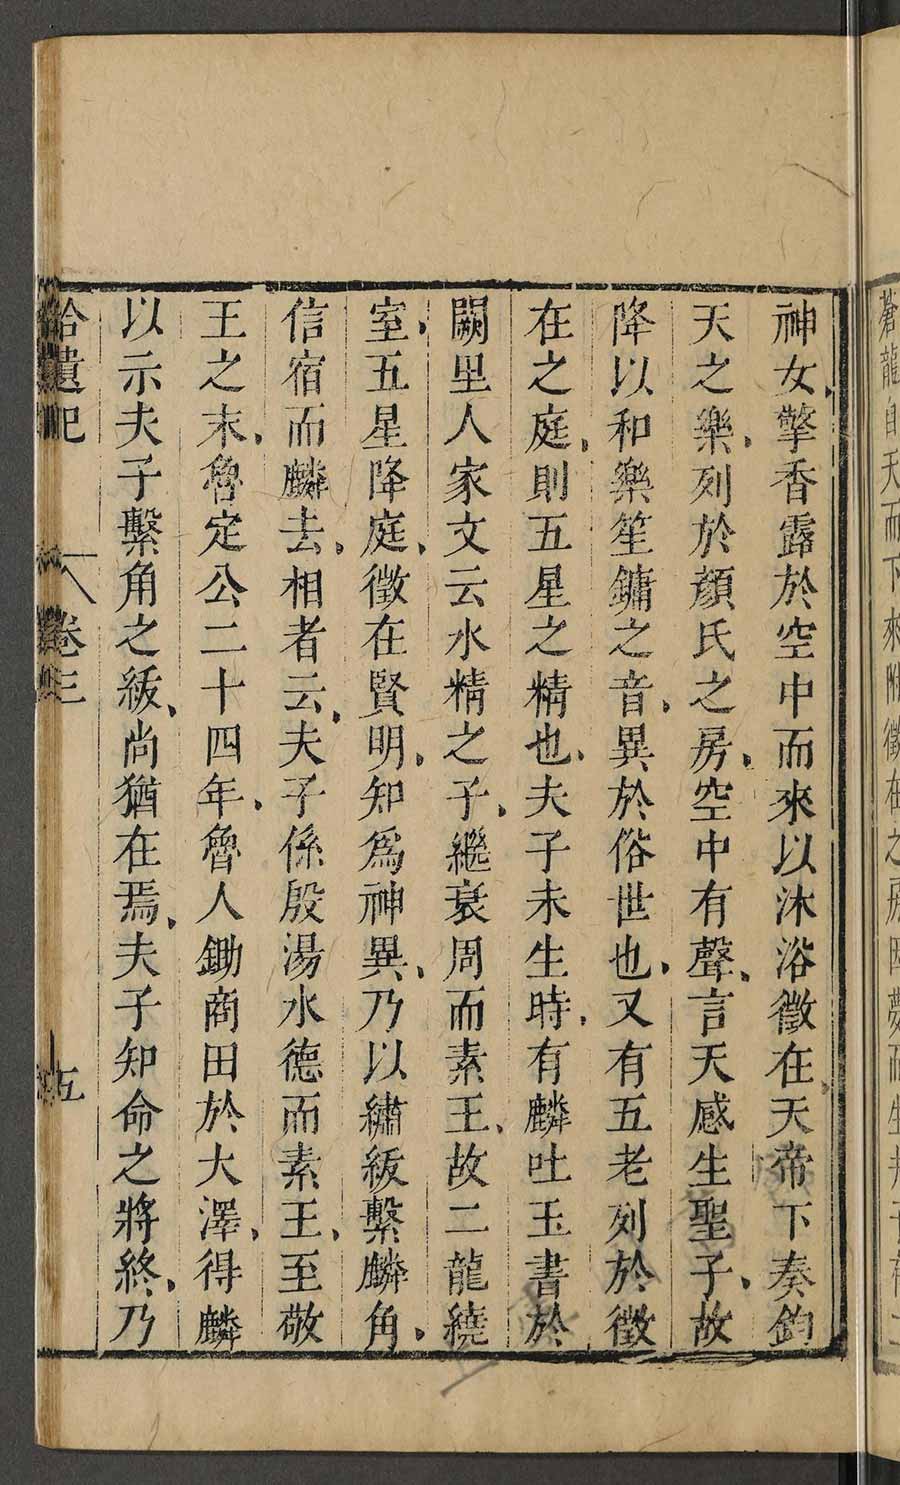 蒼龍自天而下來附徵在之房因夢而生夫子有二
神女擎香露於空中而來以沐浴徵在天帝下奏鈞
天之樂列於顏氏之房空中有聲言天感生聖子故
降以和樂笙鏞之音異於俗世也又有五老列於徵
在之庭則五星之精也夫子未生時有麟吐玉書於
闕里人家文云水精之子繼衰周而素王故二龍繞
室五星降庭徵在賢明知為神異乃以繡紱繫麟角
信宿而麟去相者云夫子係殷湯水德而素王至敬
王之末魯定公二十四年魯人鋤商田於大澤得麟
以示夫子繫角之紱尚猶在焉夫子知命之將終乃
拾遺記 卷三 五